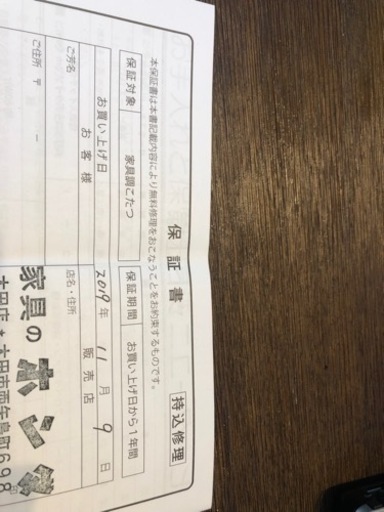 保証書
持込修理
本保証書は本書記載内容により無料修理をおこなうことをお約束するものです。
保証対象 家具調こたつ 保証期間 お買い上げ日から1年間
お買い上げ日 2019年 11月 9日
お客様 販売店
ご芳名
ご住所 〒 －
店名・住所
家具のホンダ
太田店 太田市西矢島町698